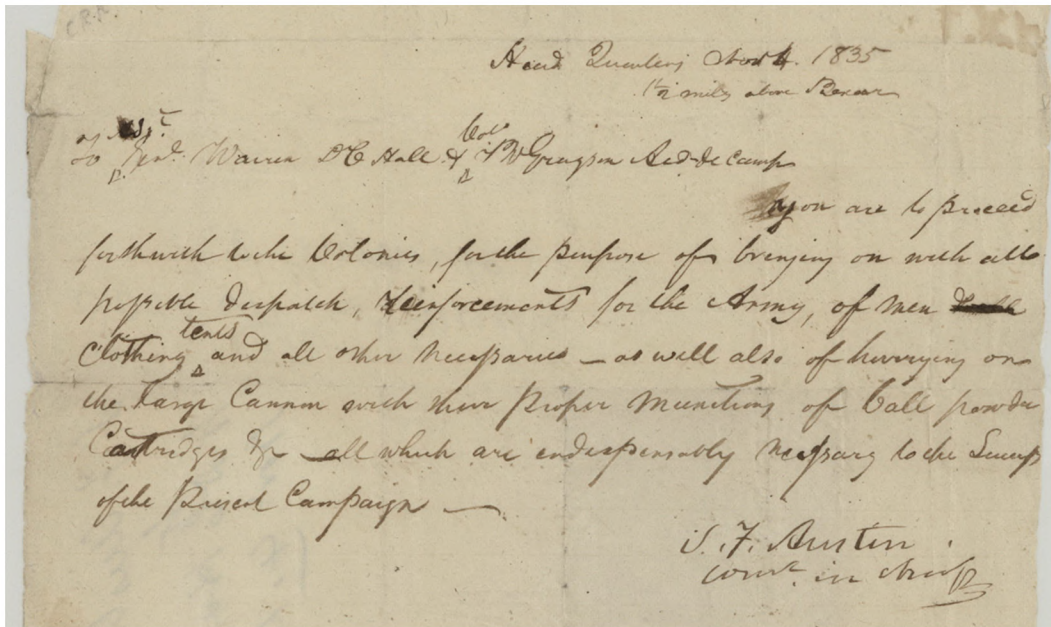 Head Quarters Nov 4. 1835
1½ miles above Bexar
Col.
To Genl. Warren D C Hall & P W Grayson Aid-de camp
you are to proceed
forthwith to the Colonies, for the purpose of bringing on with all
possible despatch, reinforcements for the Army, of men
tents
Clothing and all other necessaries – as well also of hurrying on
the large Cannon with their proper munitions of ball powder
Cartridges &c – all which are endispensably necessary to the Success
of the Present Campaign —
S. F. Austin
Comr. in chief